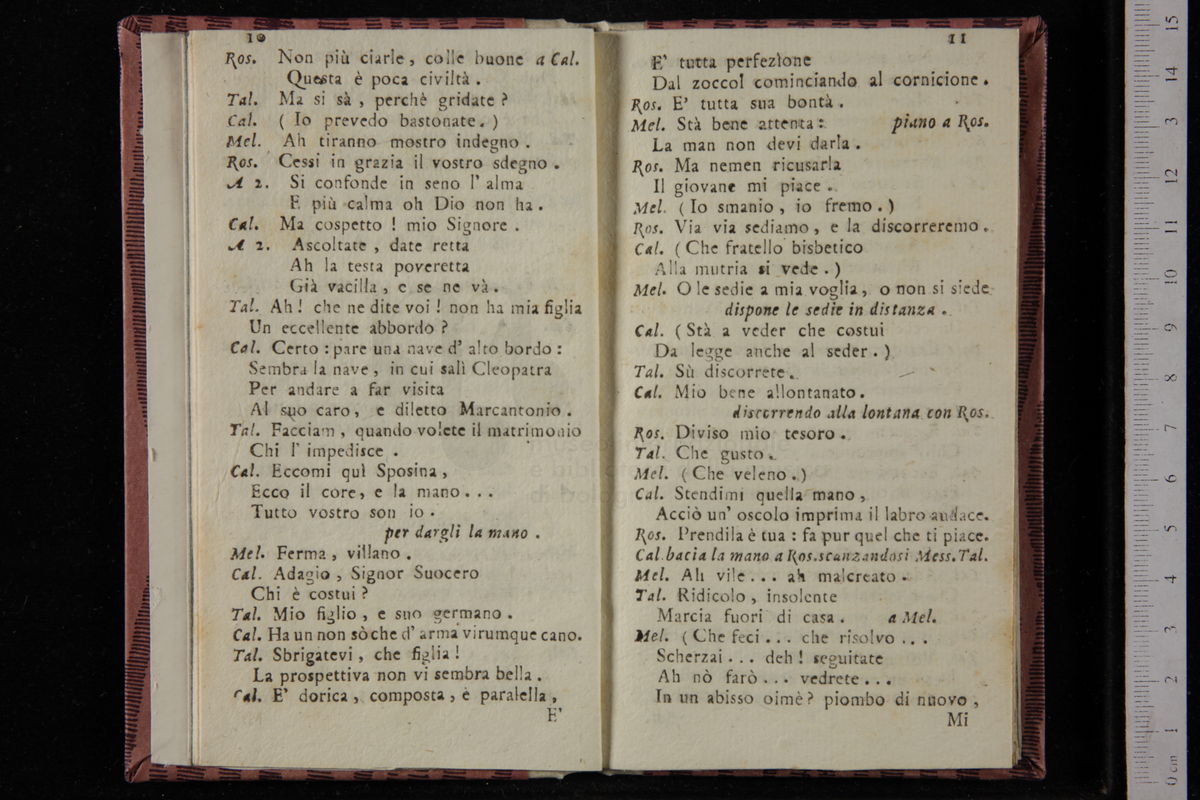 10
Ros. Non più ciarle, colle buone a Cal.
Questa è poca civiltà.
Tal. Ma si sà, perchè gridate?
Cal. (Io prevedo bastonate.)
Mel. Ah tiranno mostro indegno.
Ros. Cessi in grazia il vostro sdegno.
A 2. Si confonde in seno l' alma
E più calma oh Dio non ha.
Cal. Ma cospetto! mio Signore.
A 2. Ascoltate, date retta
Ah la testa poveretta
Già vacilla, e se ne và.
Tal. Ah! che ne dite voi! non ha mia figlia
Un eccellente abbordo?
Cal. Certo: pare una nave d' alto bordo:
Sembra la nave, in cui salì Cleopatra
Per andare a far visita
Al suo caro, e diletto Marcantonio.
Tal. Facciam, quando volete il matrimonio
Chi l' impedisce.
Cal. Eccomi quì Sposina,
Ecco il core, e la mano...
Tutto vostro son io.
per dargli la mano.
Mel. Ferma, villano.
Cal. Adagio, Signor Suocero
Chi è costui?
Tal. Mio figlio, e suo germano.
Cal. Ha un non sò che d' arma virumque cano.
Tal. Sbrigatevi, che figlia!
La prospettiva non vi sembra bella.
Cal. E' dorica, composta, e paralella,
E'
11
E' tutta perfezìone
Dal zoccol cominciando al cornicione.
Ros. E' tutta sua bontà.
Mel. Stà bene attenta: piano a Ros.
La man non devi darla.
Ros. Ma nemen ricusarla
Il giovane mi piace.
Mel. (Io smanio, io fremo.)
Ros. Via via sediamo, e la discorreremo.
Cal. (Che fratello bisbetico
Alla mutria si vede.)
Mel. O le sedie a mia voglia, o non si siede
dispone le sedie in distanza.
Cal. (Stà a veder che costui
Da legge anche al seder.)
Tal. Sù discorrete.
Cal. Mio bene allontanato.
discorrendo alla lontana con Ros.
Ros. Diviso mio tesoro.
Tal. Che gusto.
Mel. (Che veleno.)
Cal. Stendimi quella mano,
Acciò un' oscolo imprima il labro audace.
Ros. Prendila è tua: fa pur quel che ti piace.
Cal bacia la mano a Ros. scanzandosi Mess. Tal.
Mel. Ah vile... ah malcreato.
Tal. Ridicolo, insolente
Marcia fuori di casa. a Mel.
Mel. (Che feci... che risolvo...
Scherzai... deh! seguitate
Ah nò farò... vedrete...
In un abisso oimè? piombo di nuovo,
Mi
0 cm 1 2 3 4 5 6 7 8 9 10 11 12 3 14 15